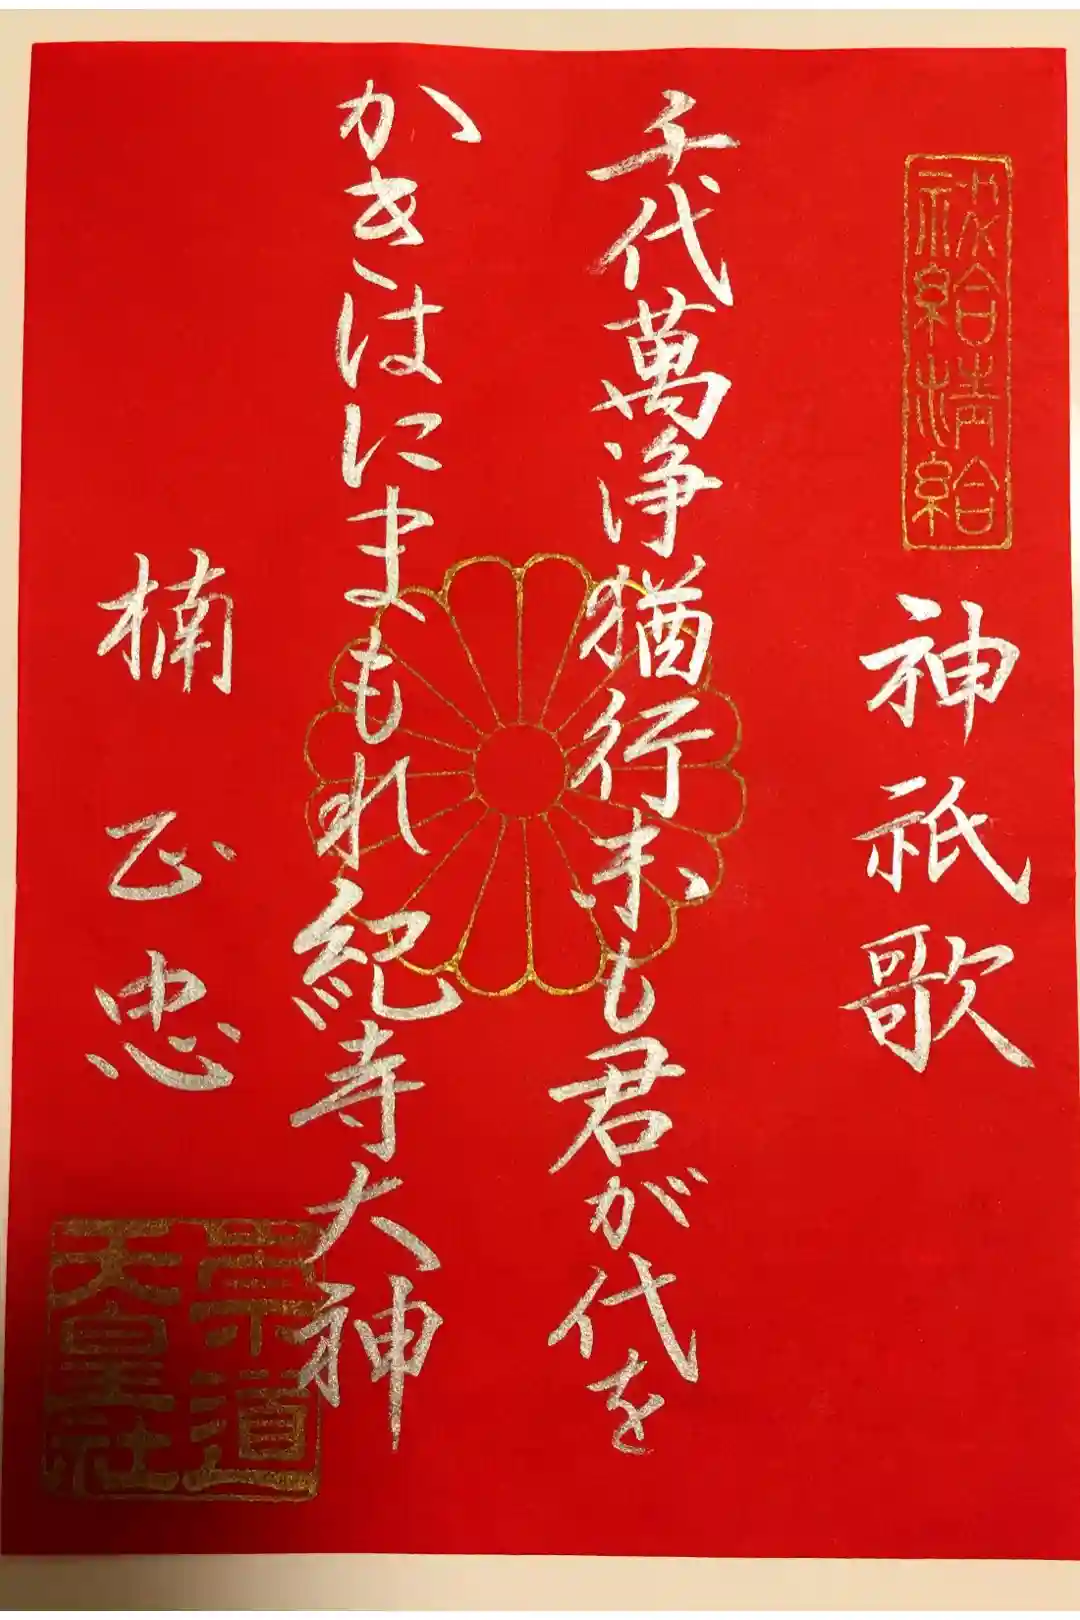 祓給清給
神祇歌
千代萬浄猶行末も君が代を
かきはにまもれ紀寺大神
楠正忠
崇道天皇社